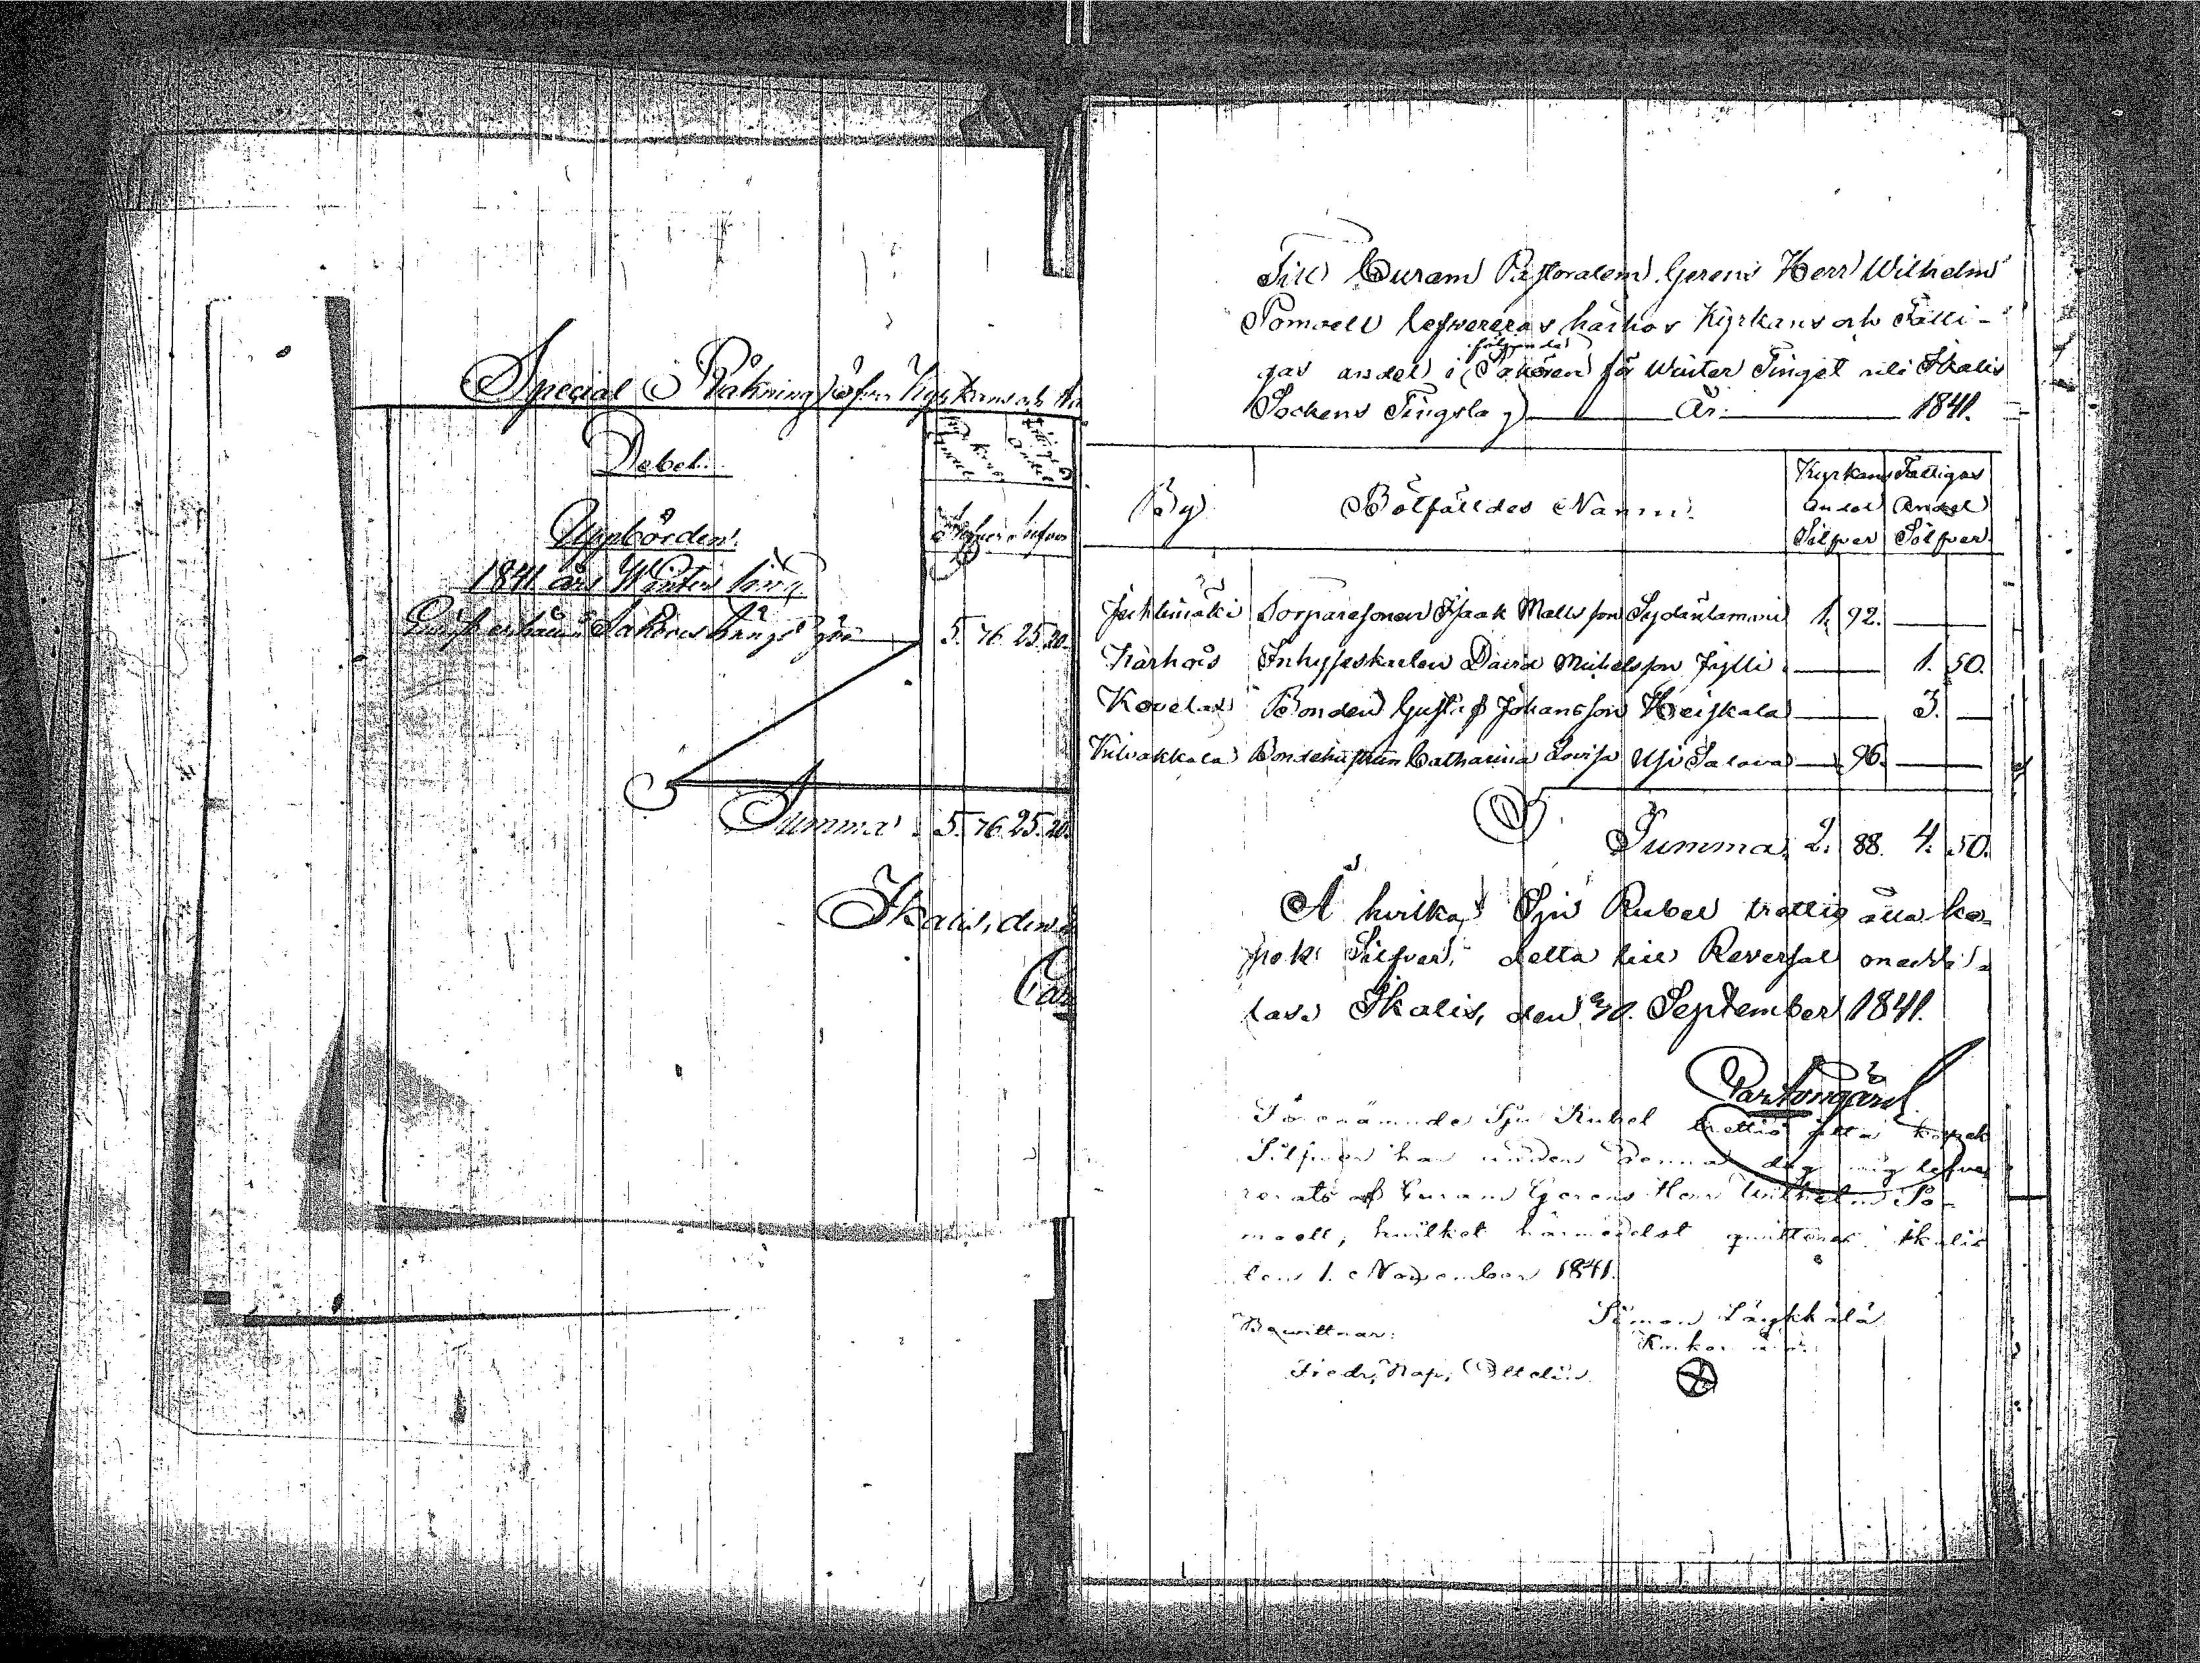 Special Räkning öfver Kyrkans och
Debet.
Kyrkans andel
Fattigas Andel
Silfver Silfver
Uppbörden.
1841 års Winter ting
Saköres längd 5. 76. 25. 20.
Summa. 5. 76. 25. 20.
Ikalis, den
Till Curam Pastoralem Gerens Herr Wilhelm
Pomoell lefvereras härhos Kyrkans och Fatti-
gas andel i följande Sakören för Winter Tinget uti Ikalis
Sockens Tingslag År 1841.
By Bötfälldes Namn. Kyrkans andel Silfver Fattigas Andel Silfver
Juhtimäki Torparesonen Isaak Matts son Sydänlammi 1. 92.
Karhois Inhyseskarlen David Michelsson Jylli 1. 50.
Kovelax Bonden Gustaf Johansson Heiskala 3.
Vilvakkala Bondehustrun Catharina Lovisa Usi Salava 96.
Summa. 2. 88. 4. 50.
Å hvilka Sju Rubel trettio åtta ko-
pek Silfver, detta till Reversal medde-
las. Ikalis, den 30. September 1841.
Förenämnde Sju Rubel trettio åtta kopek
Silfver har under denna dag mig lefve-
rerats af Curam Gerens Herr Wilhelm Po-
moell, hvilket härmedelst quitteras. Ikalis
den 1. November 1841.
Simon
Bewittnar:
Fredr. Nap.